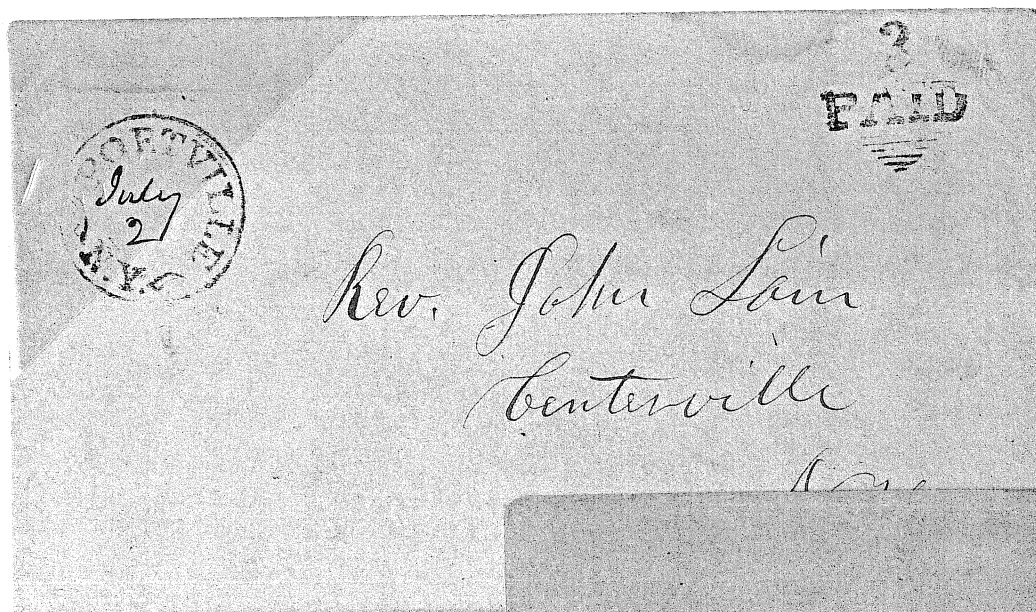 3
PAID
PORTVILLE N.Y.
July
2
Rev. John Lain
Centerville